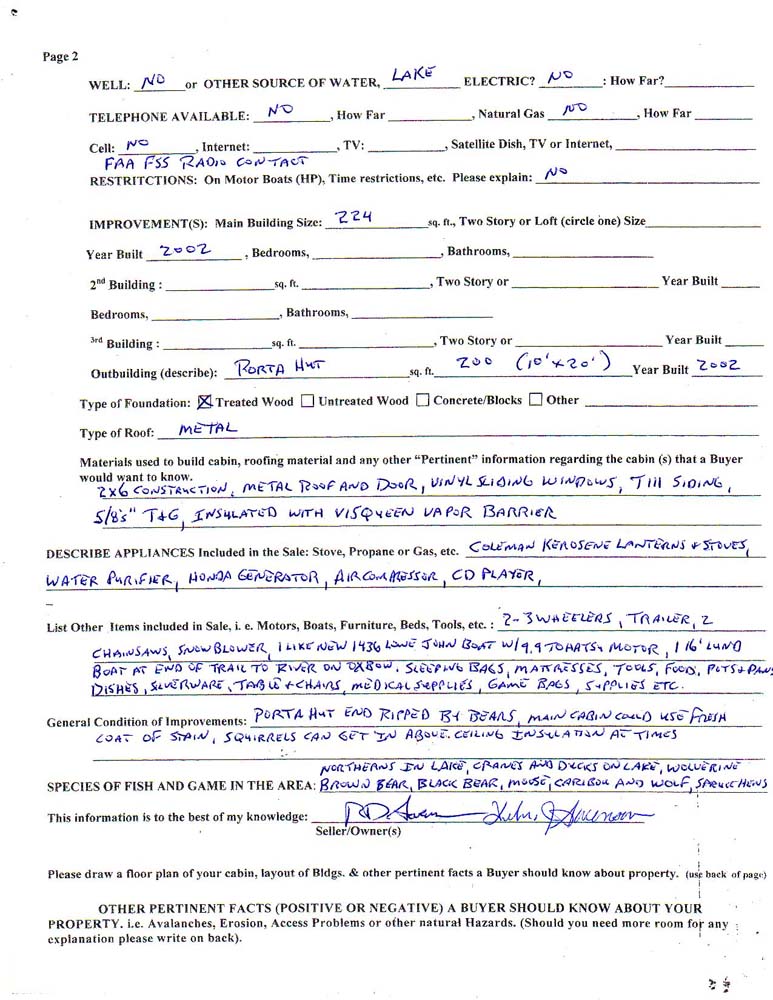 Page 2
WELL: NO or OTHER SOURCE OF WATER, LAKE ELECTRIC? NO : How Far?
TELEPHONE AVAILABLE: NO , How Far , Natural Gas NO , How Far
Cell: NO , Internet: , TV: , Satellite Dish, TV or Internet,
FAA FSS RADIO CONTACT
RESTRITCTIONS: On Motor Boats (HP), Time restrictions, etc. Please explain: NO
IMPROVEMENT(S): Main Building Size: 224 sq. ft., Two Story or Loft (circle one) Size
Year Built 2002 , Bedrooms, , Bathrooms,
2nd Building : sq. ft. , Two Story or Year Built
Bedrooms, , Bathrooms,
3rd Building : sq. ft. , Two Story or Year Built
Outbuilding (describe): PORTA HUT sq. ft. 200 (10'x20') Year Built 2002
Type of Foundation: ☒ Treated Wood ☐ Untreated Wood ☐ Concrete/Blocks ☐ Other
Type of Roof: METAL
Materials used to build cabin, roofing material and any other “Pertinent” information regarding the cabin (s) that a Buyer
would want to know.
2X6 CONSTRUCTION, METAL ROOF AND DOOR, VINYL SLIDING WINDOWS, T111 SIDING,
5/8's" T&G, INSULATED WITH VISQUEEN VAPOR BARRIER
DESCRIBE APPLIANCES Included in the Sale: Stove, Propane or Gas, etc. COLEMAN KEROSENE LANTERNS + STOVES,
WATER PURIFIER, HONDA GENERATOR, AIR COMPRESSOR, CD PLAYER,
List Other Items included in Sale, i. e. Motors, Boats, Furniture, Beds, Tools, etc. : 2-3 WHEELERS, TRAILER, 2
CHAINSAWS, SNOW BLOWER, 1 LIKE NEW 1436 LOWE JOHN BOAT W/9.9 TOHATSU MOTOR, 1 16' LUND
BOAT AT END OF TRAIL TO RIVER ON OXBOW, SLEEPING BAGS, MATTRESSES, TOOLS, FOOD, POTS + PANS
DISHES, SILVERWARE, TABLE + CHAIRS, MEDICAL SUPPLIES, GAME BAGS, SUPPLIES ETC.
General Condition of Improvements: PORTA HUT END RIPPED BY BEARS, MAIN CABIN COULD USE FRESH
COAT OF STAIN, SQUIRRELS CAN GET IN ABOVE CEILING INSULATION AT TIMES
NORTHERNS IN LAKE, CRANES AND DUCKS ON LAKE, WOLVERINE
SPECIES OF FISH AND GAME IN THE AREA: BROWN BEAR, BLACK BEAR, MOOSE, CARIBOU AND WOLF, SPRUCE HENS
This information is to the best of my knowledge:
Seller/Owner(s)
Please draw a floor plan of your cabin, layout of Bldgs. & other pertinent facts a Buyer should know about property. (use back of page)
OTHER PERTINENT FACTS (POSITIVE OR NEGATIVE) A BUYER SHOULD KNOW ABOUT YOUR
PROPERTY. i.e. Avalanches, Erosion, Access Problems or other natural Hazards. (Should you need more room for any
explanation please write on back).